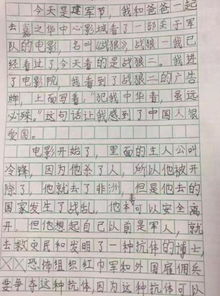 今天是建军节，我和爸爸一起
去之华中心影城看了一部关于军
队的电影，名叫《战狼》战狼一我已
经看过了今天看的是战狼二。我
进了电影院，我看到了战狼二的广告
牌，上面写着：“犯我中华者，虽远
必殊。”这句话让我感到了中国人很
爱国。
电影开始了，里面的主人公叫
冷锋，因为他杀了人，所以他被开
除了，他就去了非洲，但是他去的
国家发生了战乱，他本可以安全离
开，但他想起自己以前是军人，就
去救灾民和发明了一种抗体的博士
××恐怖组织红巾军和外国雇佣兵
要争夺这种抗体，因为这种抗体可以